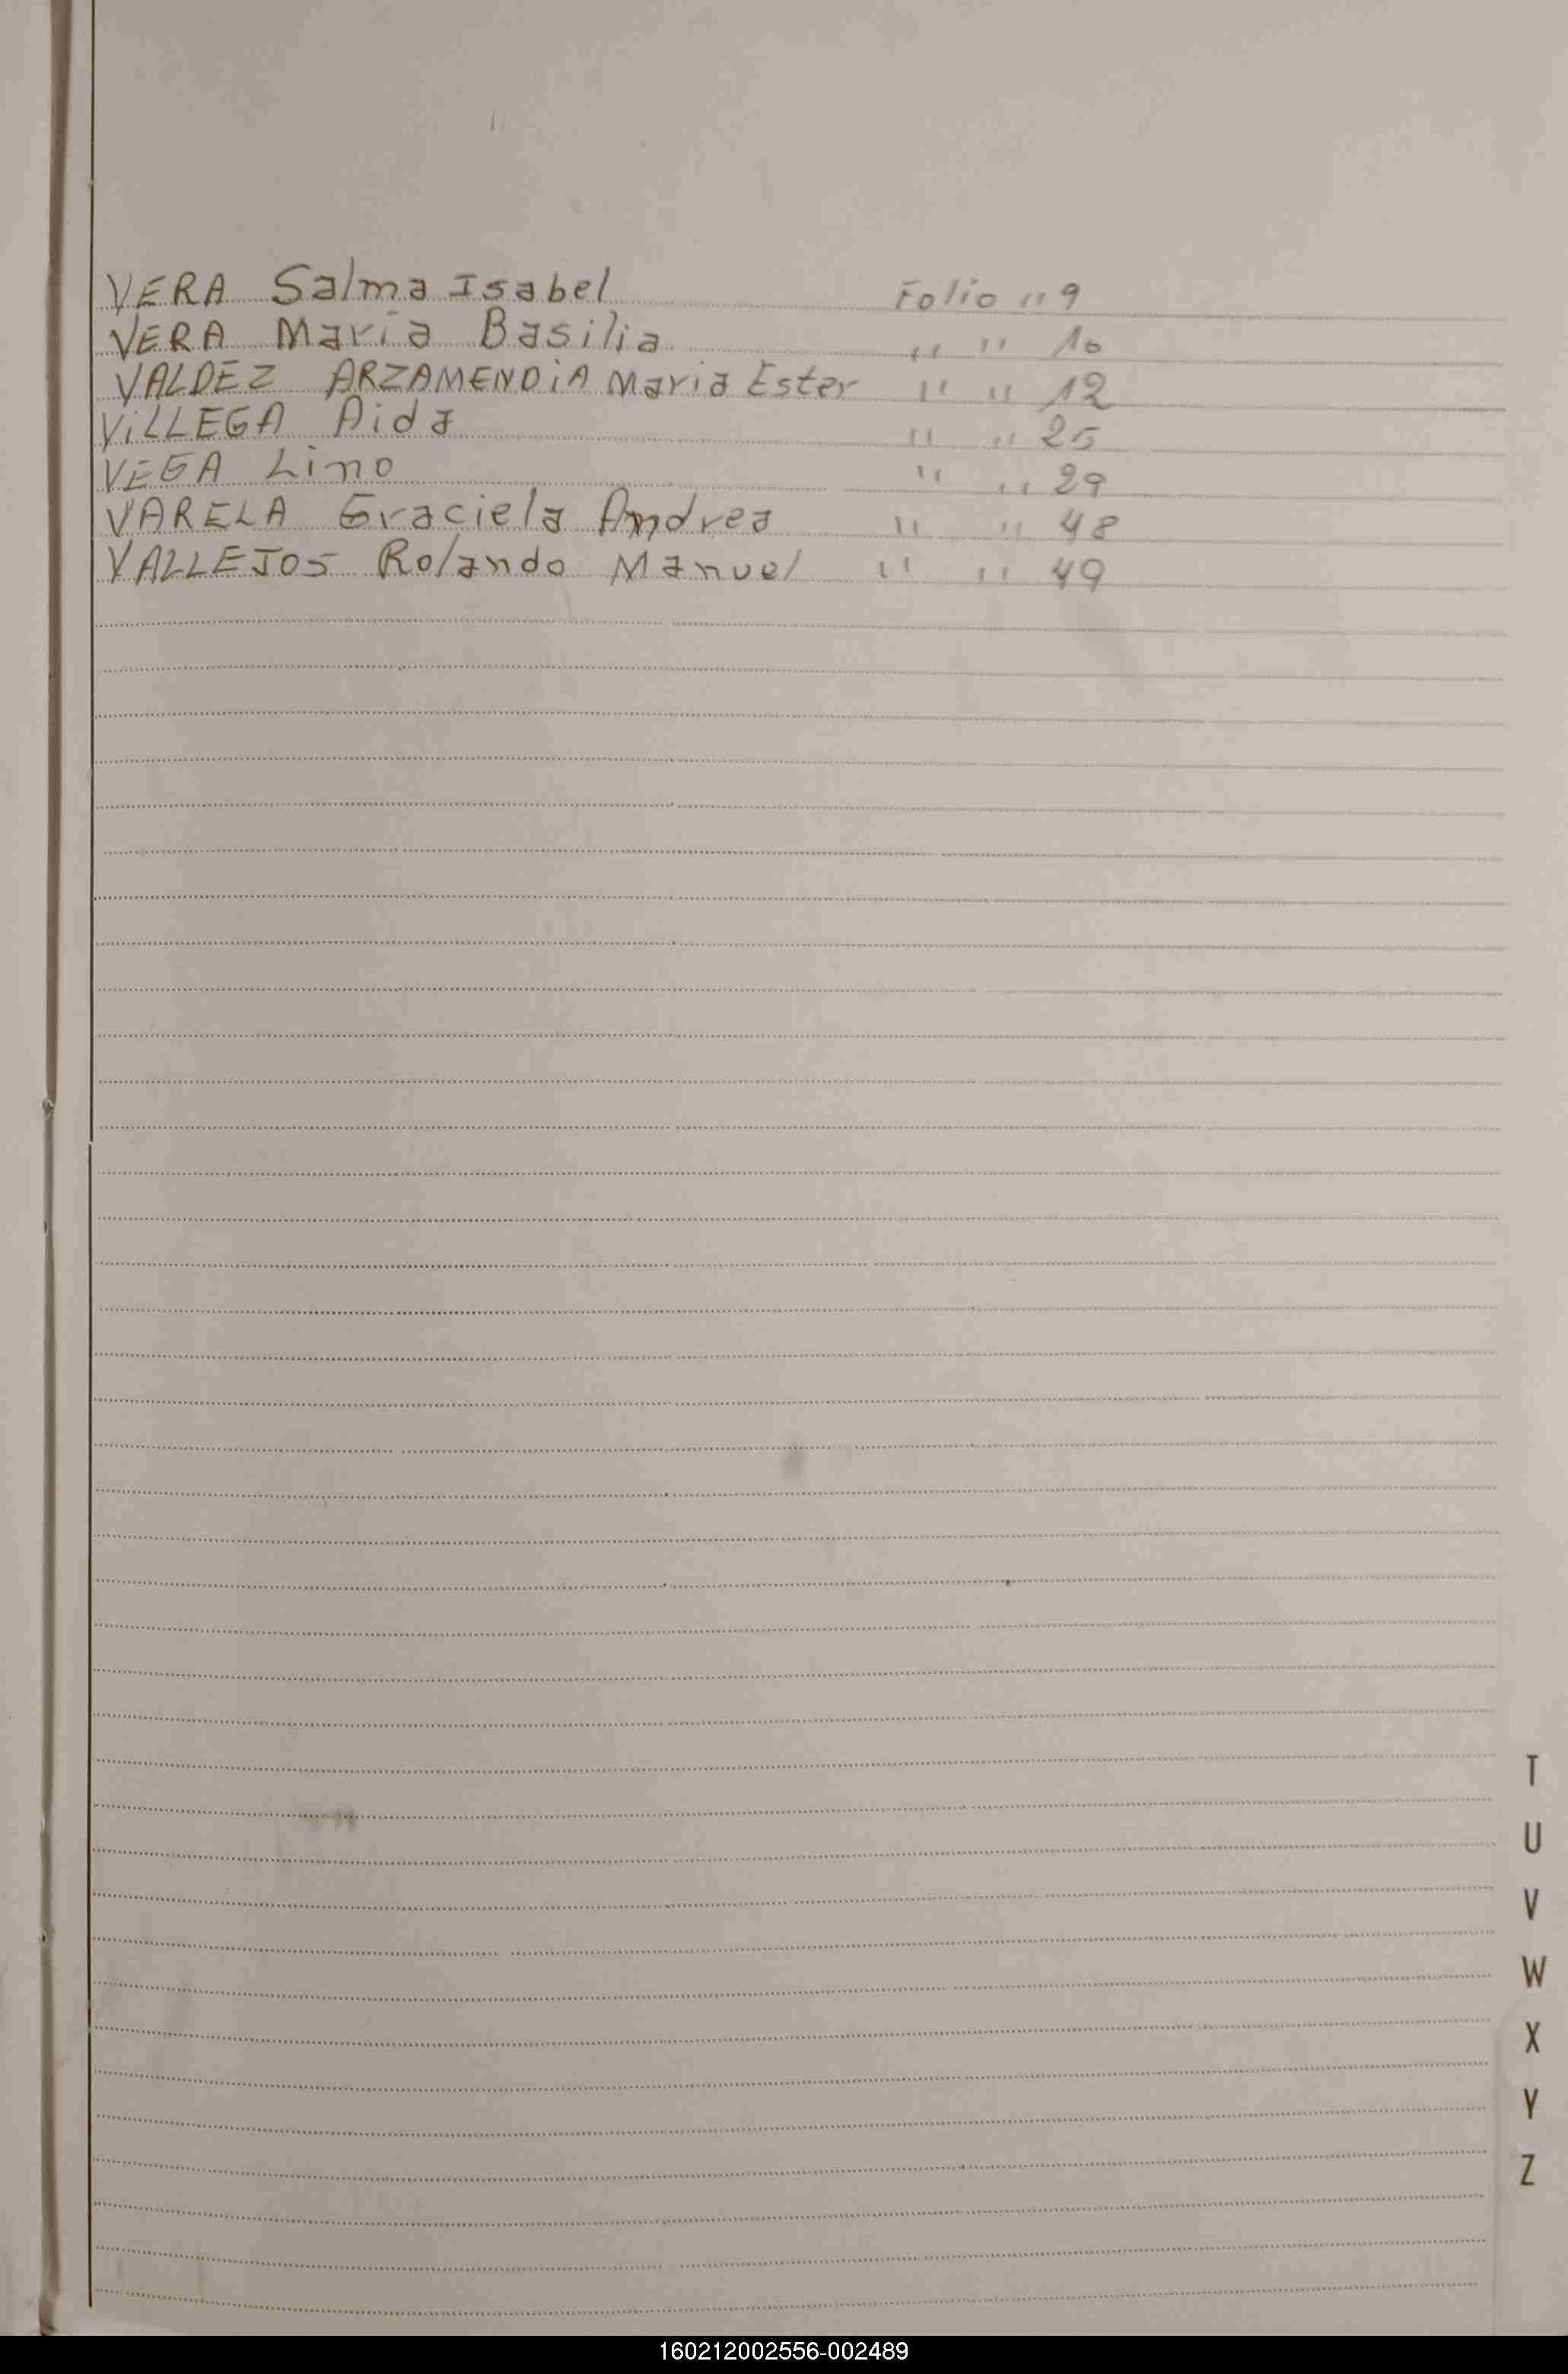 VERA Salma Isabel Folio " 9
VERA Maria Basilia " " 10
VALDEZ ARZAMENDiA Maria Ester " " 12
ViLLEGA Aida " " 25
VEGA Lino " " 29
VARELA Graciela Andrea " " 48
VALLEJOS Rolando Manuel " " 49
T
U
V
W
X
Y
Z
160212002556-002489